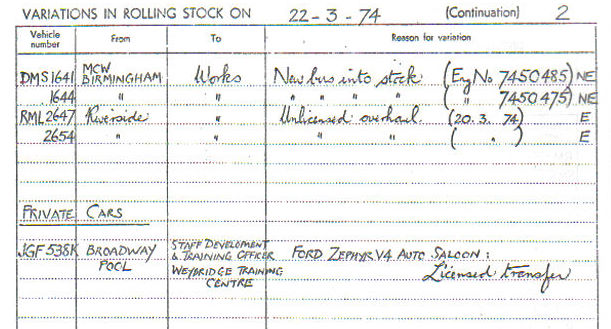 VARIATIONS IN ROLLING STOCK ON 22-3-74 (Continuation) 2
Vehicle number From To Reason for variation
DMS1641 MCW BIRMINGHAM Works New bus into stock (Eng No 7450485) NE
1644 " " " " " " (" 7450475) NE
RML2647 Riverside " Unlicensed overhaul. (20.3.74) E
2654 " " " " ( " ) E
PRIVATE CARS
JGF538K BROADWAY POOL STAFF DEVELOPMENT & TRAINING OFFICER WEYBRIDGE TRAINING CENTRE FORD ZEPHYR V4 AUTO SALOON :
Licensed transfer